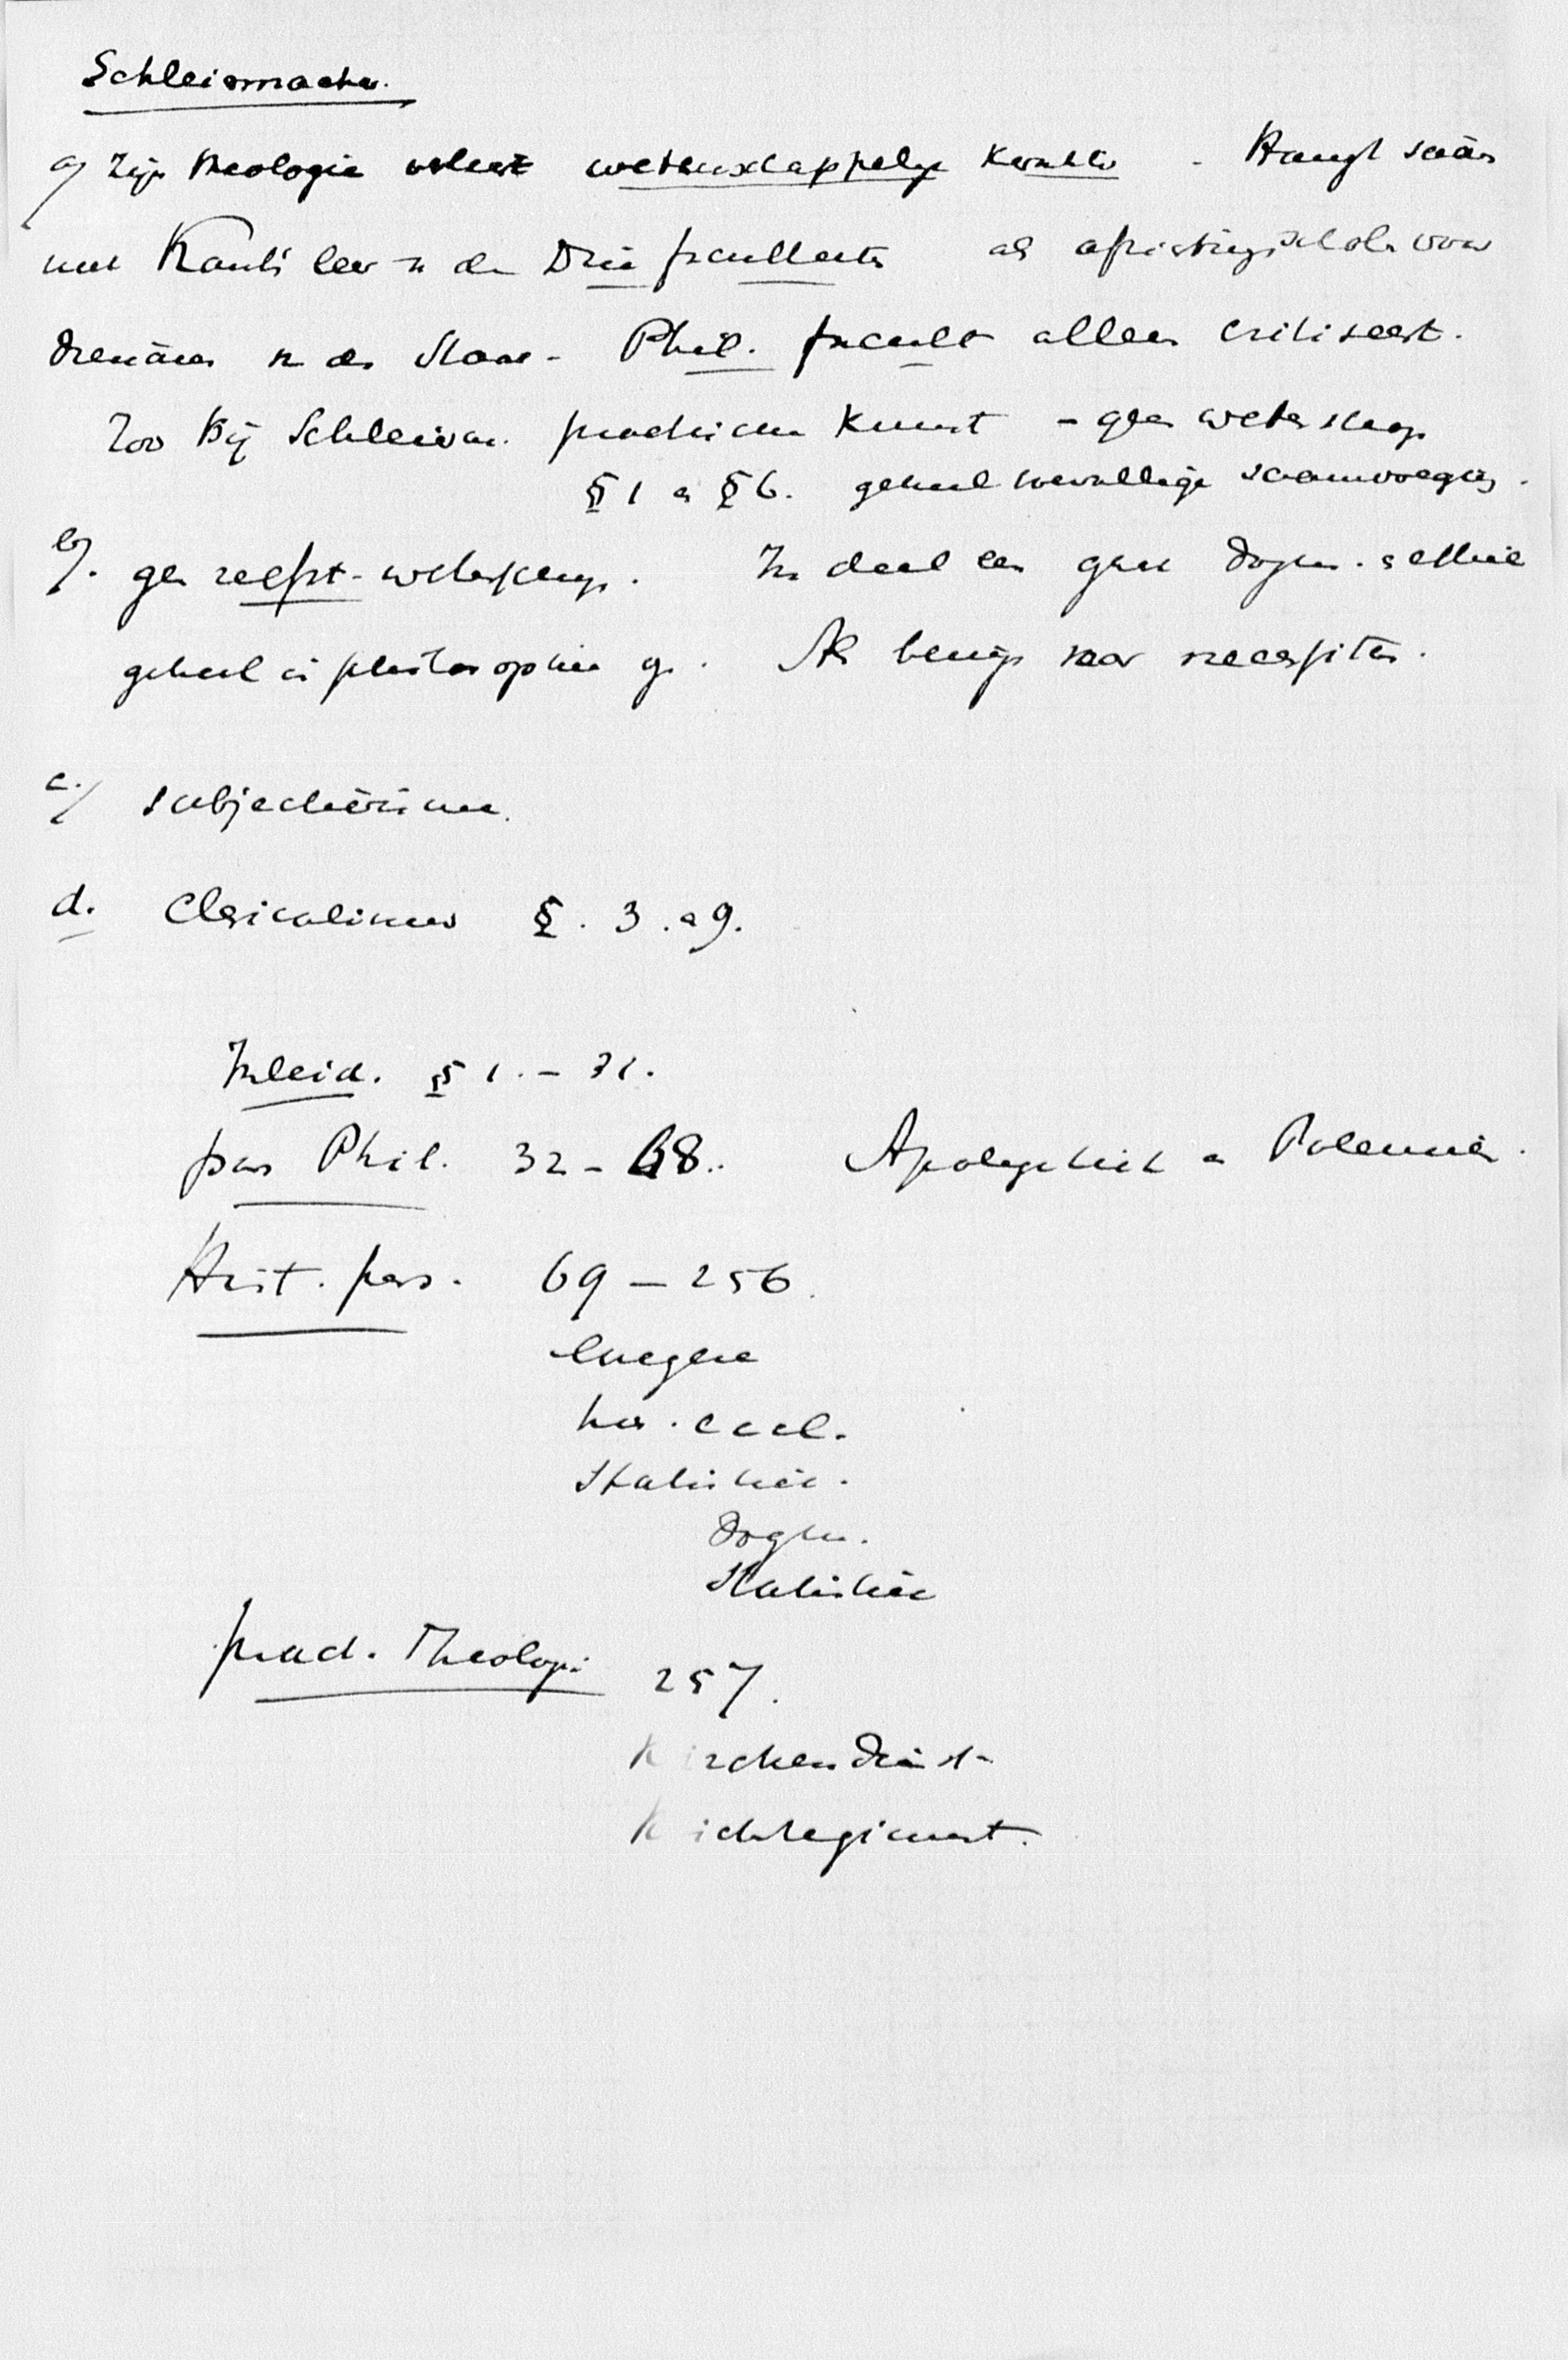 Schleiermacher.
a) Zijn theologie verliest wetenschappelijk karakter - Hangt saam
met Kants leer v. de Drie faculteiten als africhtingschole voor
dienaren v. den Staat - Phil. facult alleen critiseert.
Zoo bij Schleierm. practische Kunst - geen wetenschap
§ 1 en § 6. geheel toevallige saamvoeging.
b). geen zelfst. wetenschap. In deel een geen Dogm. en ethiek
geheel in philosophie g. Als bewijs voor necessiteit.
c./ subjectivisme.
d. Clericalisme §. 3. en 9.
Inleid. §§ 1. - 31.
pars Phil. 32 - 68.. Apologetiek en Polemiek.
Hist. pars. 69 - 256.
exegese
his. eccl.
Statistiek.
Dogm.
Statistiek
pract. Theologie 257.
Kirchendienst
Kirchregiment.